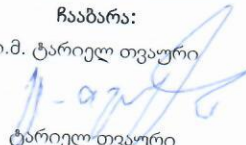 ჩააბარა:
ი.მ. ტარიელ თვაური
ტარიელ თვაური